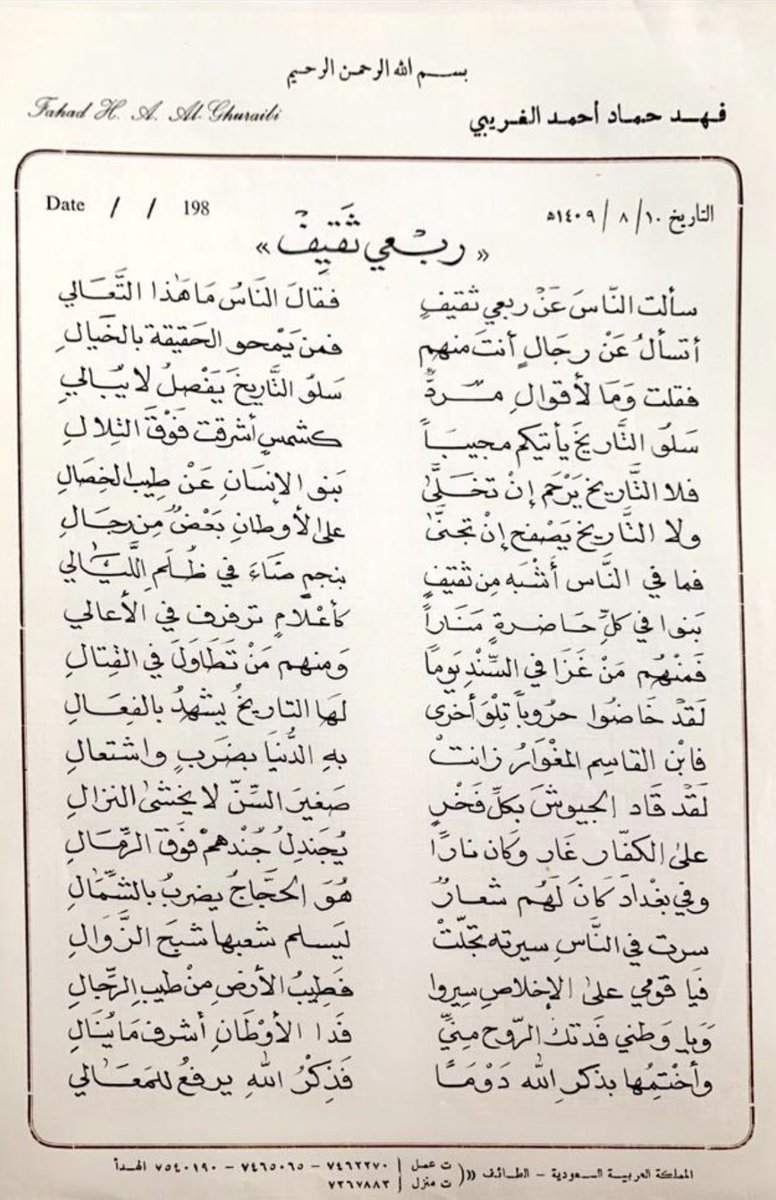 بسم الله الرحمن الرحيم
Fahad H. A. Al-Ghuraibi فهد حماد أحمد الغريبي
Date / / 198 التاريخ ١٠/ ٨ / ١٤٠٩ه
« ربعي ثَقِيفْ »
سألت النَّاسَ عَنْ ربعي ثقيفٍ فقالَ النَّاسُ مَا هَٰذا التَّعَالي
أتسألُ عَنْ رجَالٍ أنتَ منهم فمن يَمْحو الحَقيقة بالخَيالِ
فقلت وَمَا لأقوالِ مَردٌّ سَلُو التَّاريخَ يَفْصلُ لا يُبالي
سَلُو التَّاريخَ يأتيكم مجيبَاً كشمسٍ أشرقت فَوْقَ التِلالِ
فلا التَّاريخ يَرْحَم إنْ تخَلَّىٰ بَنو الإنسَانِ عَنْ طِيب الخصَالِ
ولا التَّاريخ يَصْفح إنْ تجنَّىٰ علىٰ الأوطانِ بَعْضٌ مِن رجَالِ
فما في النَّاس أشْبَه مِن ثقيفٍ بنجمٍ ضَاءَ في ظُلَمِ اللَّيَالي
بَنوا في كلِّ حَاضرةٍ مَنَاراً كأعْلامٍ ترفرف في الأعالي
فَمنْهُم مَنْ غَزَا في السِّنْدِ يَوماً وَمنهم مَنْ تَطَاوَلَ في القِتالِ
لَقَدْ خَاضُوا حرُوباً تِلْوَ أخرى لهَا التاريخُ يشهدُ بالفِعَالِ
فابْن القاسِم المغْوَارُ زانتْ بهِ الدُّنيَا بضَربٍ واشتعالِ
لَقَدْ قَاد الجيوشَ بكلِّ فَخْرٍ صَغيرَ السِّنِّ لا يخشىٰ النزالِ
علىٰ الكفّار غَار وكَان نارًا يُجَندِلُ جُنْدهمْ فوْقَ الرِّمَالِ
وفي بغْدادَ كَانَ لَهُم شعارٌ هُوَ الحَجَّاجُ يضربُ بالشِّمَالِ
سرت في النَّاسِ سيرته تجلّتْ ليَسلم شعبها شبَح الزَّوَالِ
فيَا قَومي علىٰ الإخلاصِ سِيروا فَطِيبُ الأرضِ مِنْ طيبِ الرِّجالِ
وَيا وَطني فَدتكَ الرّوح منِيِّ فَدا الأوْطَانِ أشرف مَا يُنَالِ
وأخْتِمُها بذكرِ الله دَوْمَاً فَذِكْرُ اللهِ يرفعُ للمَعَالي
المملكة العربية السعودية - الطائف «( ت عمل | ٧٤٦٢٢٧٠ - ٧٤٦٥٠٦٥ - ٧٥٤٠١٩٠ الهدأ
ت منزل | ٧٣٦٧٨٨٣